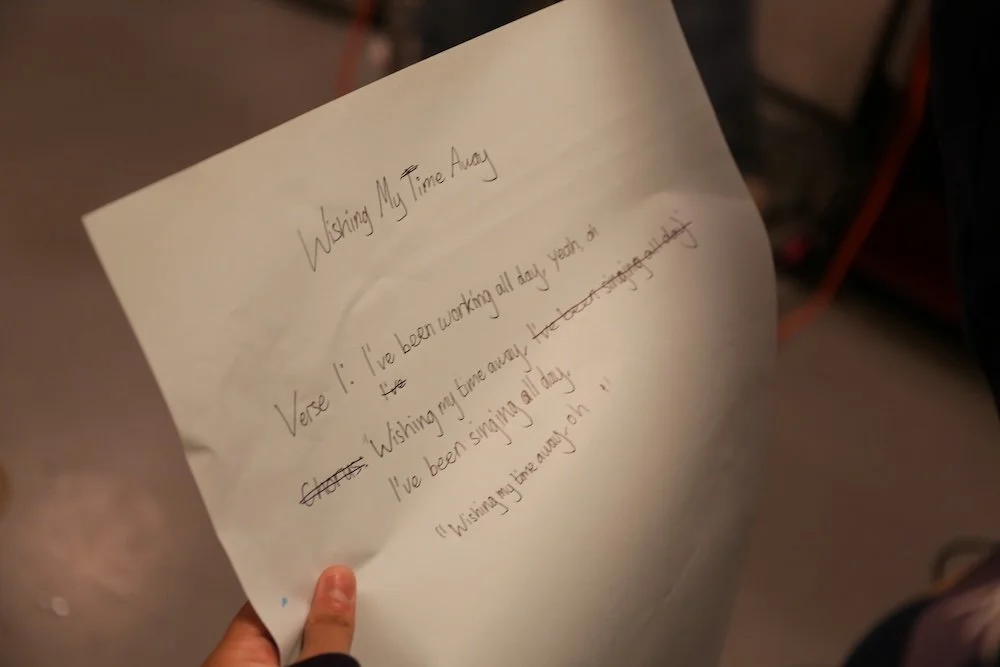 Wishing My Time Away
Verse 1: I've been working all day, yeah, oh
I've
Chorus: Wishing my time away. "I've been singing all day"
I've been singing all day.
"Wishing my time away- oh "